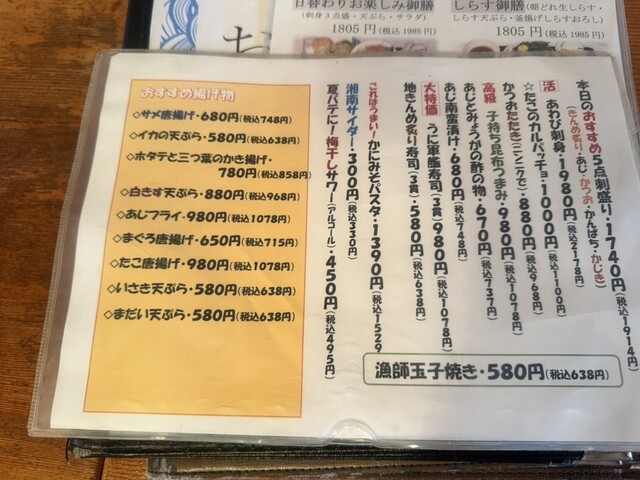 日替わりお楽しみ御膳
(刺身3点盛・天ぷら・サラダ)
1805円(税込1985円)
しらす御膳(朝どれ生しらす・
しらす天ぷら・釜揚げしらすおろし)
1805円(税込1985円)
本日のおすすめ5点刺盛り・1740円(税込1914円)
(きんめ炙り・あじ・かつお・かんぱち・かじき)
活 あわび刺身・1980円(税込2178円)
☆たこのカルパッチョ・1000円(税込1100円)
かつおたたき(ニンニクで)・880円(税込968円)
高級 子持ち昆布つまみ・980円(税込1078円)
あじとみょうがの酢の物・670円(税込737円)
あじ南蛮漬け・680円(税込748円)
大特価 うに軍艦寿司(3貫)980円(税込1078円)
地きんめ炙り寿司(3貫)・580円(税込638円)
これはうまい!かにみそパスタ・1390円(税込1529
湘南サイダー・300円(税込330円)
夏バテに!梅干しサワー(アルコール)・450円(税込495円)
漁師玉子焼き・580円(税込638円)
おすすめ揚げ物
◇サメ唐揚げ・680円(税込748円)
◇イカの天ぷら・580円(税込638円)
◇ホタテと三つ葉のかき揚げ・
780円(税込858円)
◇白きす天ぷら・880円(税込968円)
◇あじフライ・980円(税込1078円)
◇まぐろ唐揚げ・650円(税込715円)
◇たこ唐揚げ・980円(税込1078円)
◇いさき天ぷら・580円(税込638円)
◇まだい天ぷら・580円(税込638円)